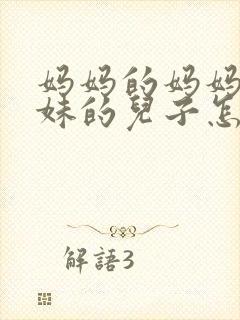 妈妈的妈妈
妹的兒子怎
解語3